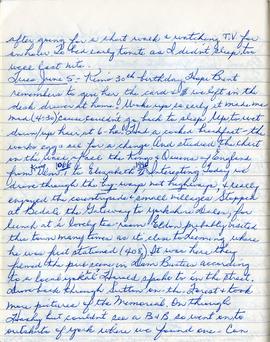 after going for a short walk & watching T.V for
an hour. To bed early tonite as I didn't sleep too
well last nite.
Tues June 5 - Kim's 30th birthday. Hope Brent
remembers to give her the card & $ we left in the
desk drawer at home! Woke up so early it made me
mad (4:30) cause couldn't go back to sleep. Up to wet
drum/up hair at 6. Had a cooked breakfast - the
works eggs for a change. And studied the chart
on the wall - all the Kings & Queens of England
from 1066 to Elizabeth II 1952. Interesting. Today we
drove through the by-ways not highways, I really
enjoyed the countryside & small villages. Stopped
at Bedale the Gateway to Yorkshire Dales, for
lunch at a lovely tea-room. Eldon probably visited
this town many times as it's close to Leeming where
he was first stationed (408). It was here they
joined the procession in Lom Burton according
to a local gent Harold spoke to in the street.
Drove back through Sutton-on-the-Forest & took
more pictures of the Memorial. On through
Haxby but couldn't see a B&B so went on to
outskirts of York where we found one -